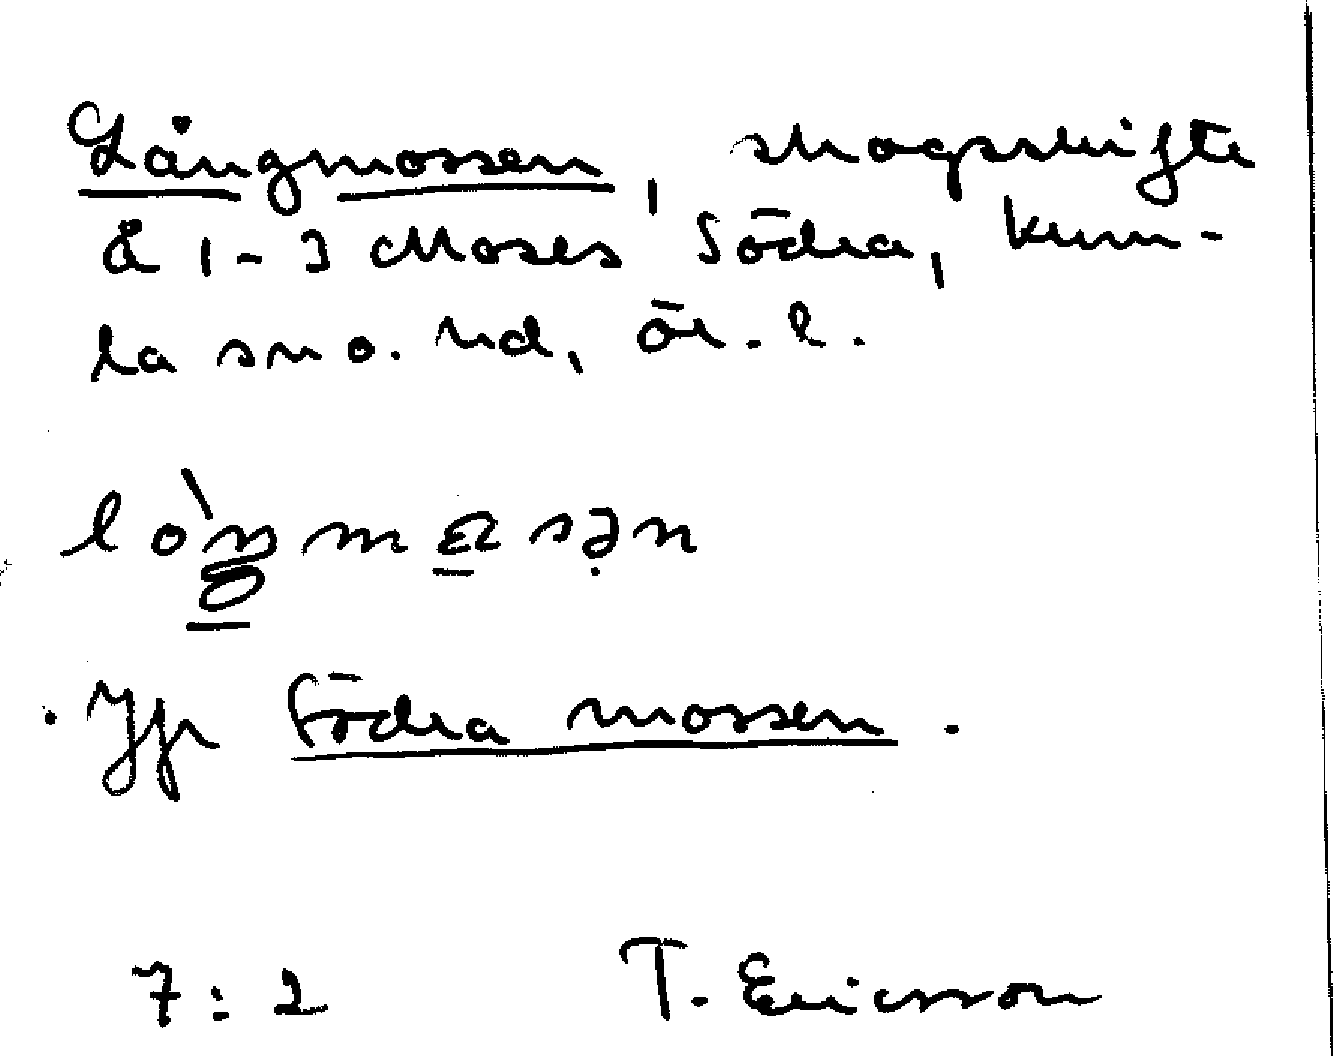 Långmossen, skogsskifte
å 1-3 Moses Södra, Kum-
la sn o. hd, Ör. l.
Jfr Södra mossen.
7:2 T. Ericsson